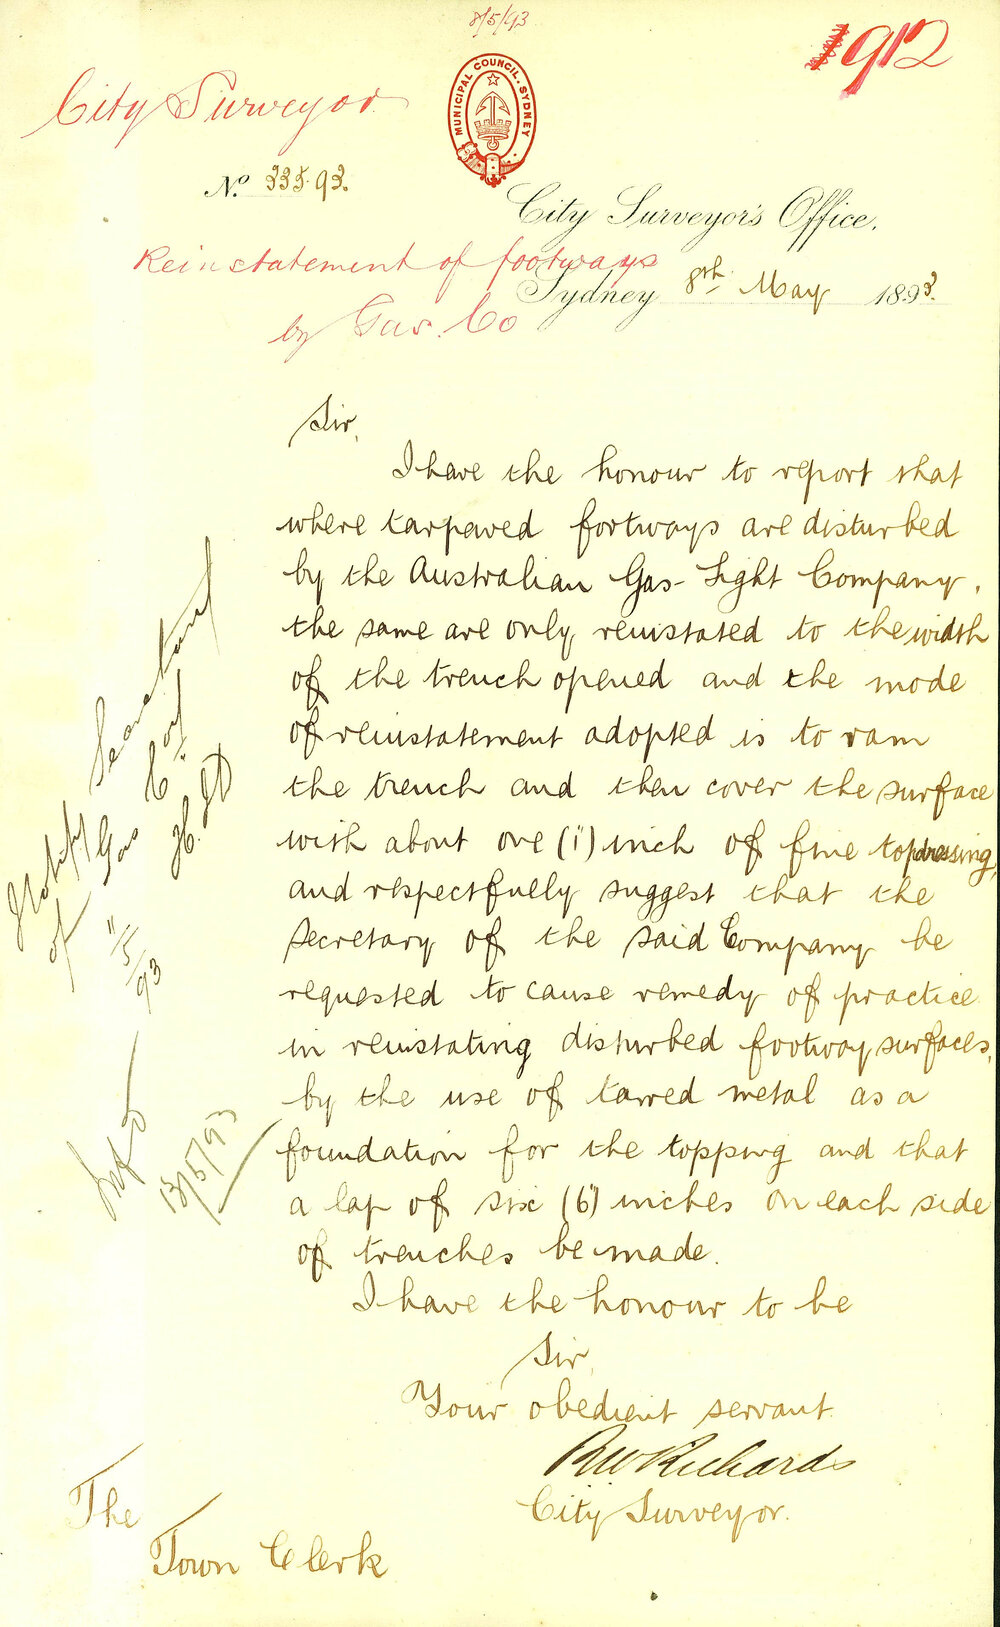 8/5/93
1912
City Surveyor
MUNICIPAL COUNCIL. SYDNEY
No. 335.93.
City Surveyor's Office.
Reinstatement of footways
Sydney 8th May 1893.
by Gas. Co
Sir,
I have the honour to report that
where tarpaved footways are disturbed
by the Australian Gas-Light Company,
the same are only reinstated to the width
of the trench opened and the mode
of reinstatement adopted is to ram
the trench and then cover the surface
with about one (1") inch of fine topdressing,
and respectfully suggest that the
Secretary of the said Company be
requested to cause remedy of practice
in reinstating disturbed footway surfaces,
by the use of tarred metal as a
foundation for the topping and that
a lap of six (6") inches on each side
of trenches be made.
I have the honour to be
Sir,
Your obedient servant
RW Richards
City Surveyor.
The
Town Clerk
Notify Secretary
of Gas Coy
11/5/93
13/5/93